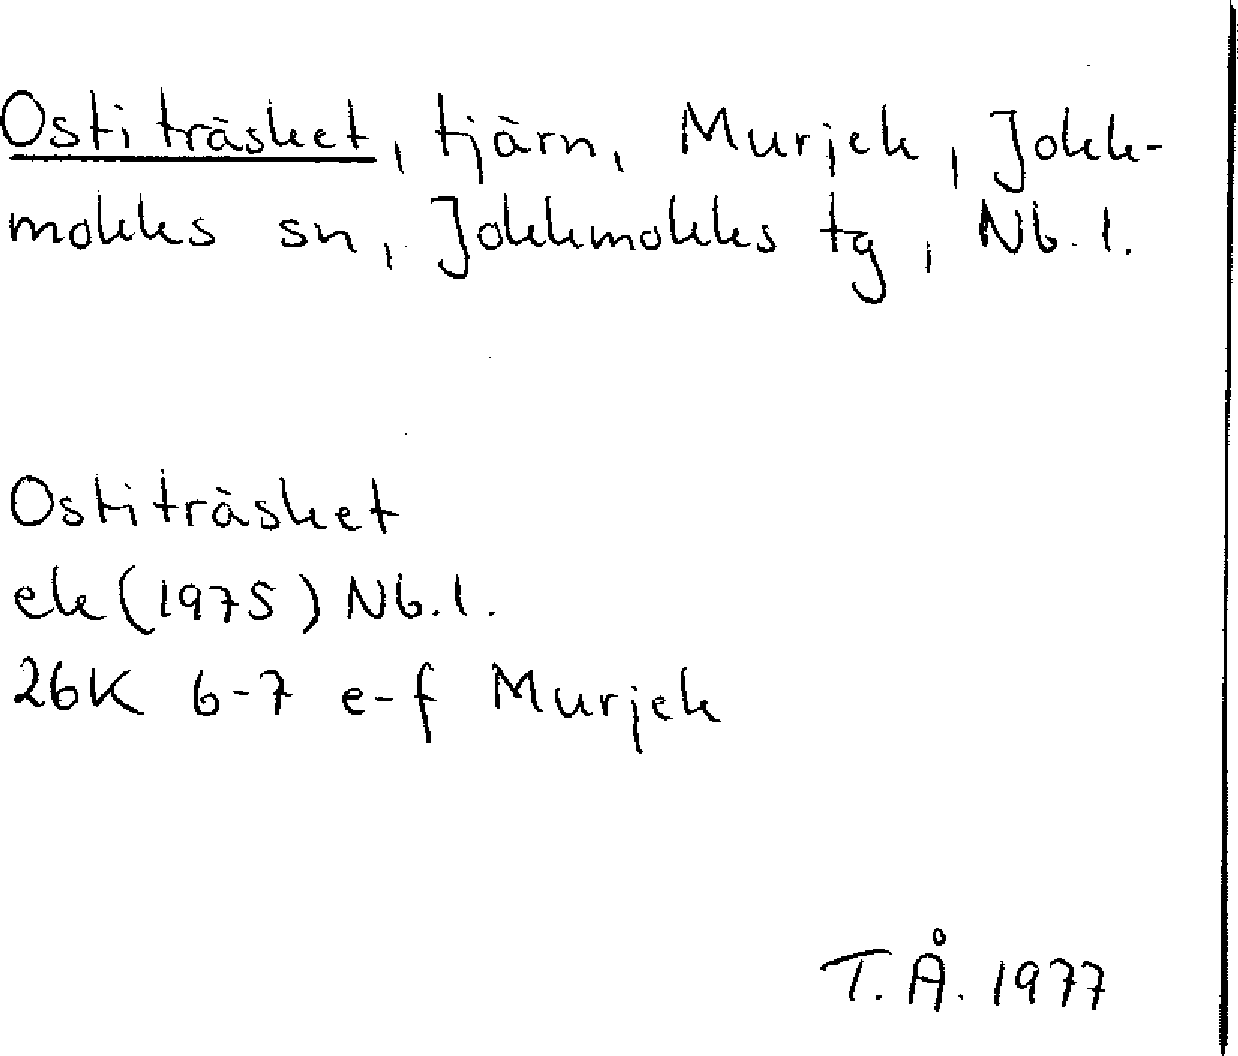 Ostiträsket, tjärn, Murjek, Jokk-
mokks sn, Jokkmokks tg, Nb. l.
Ostiträsket
ek (1975) Nb. l.
26K 6-7 e-f Murjek
T. Å. 1977